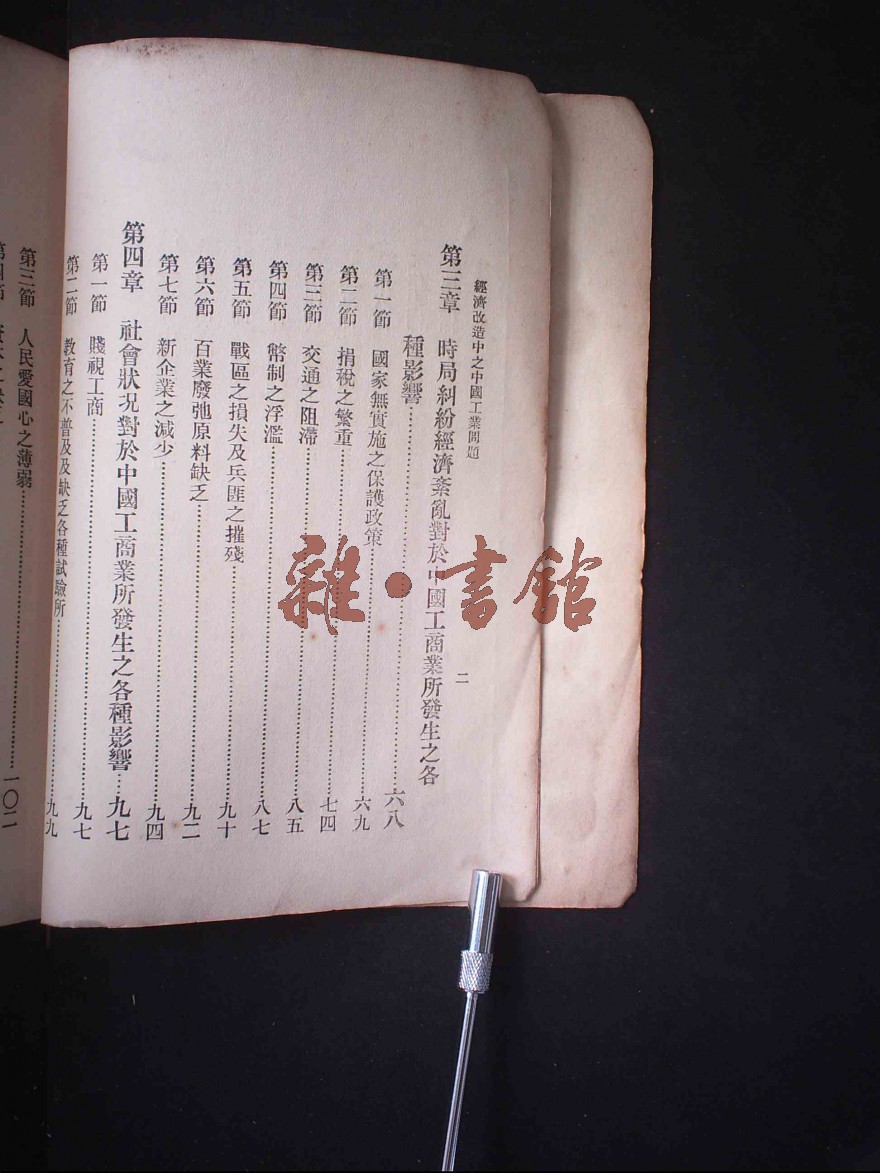 經濟改造中之中國工業問題
二
第三章　時局糾紛經濟紊亂對於中國工商業所發生之各
種影響……六八
第一節　國家無實施之保護政策……六九
第二節　捐稅之繁重……七四
第三節　交通之阻滯……八五
第四節　幣制之浮濫……八七
第五節　戰區之損失及兵匪之摧殘……九十
第六節　百業廢弛原料缺乏……九二
第七節　新企業之減少……九四
第四章　社會狀况對於中國工商業所發生之各種影響……九七
第一節　賤視工商……九七
第二節　教育之不普及及缺乏各種試驗所……九九
第三節　人民愛國心之薄弱……一〇二
雜·書館